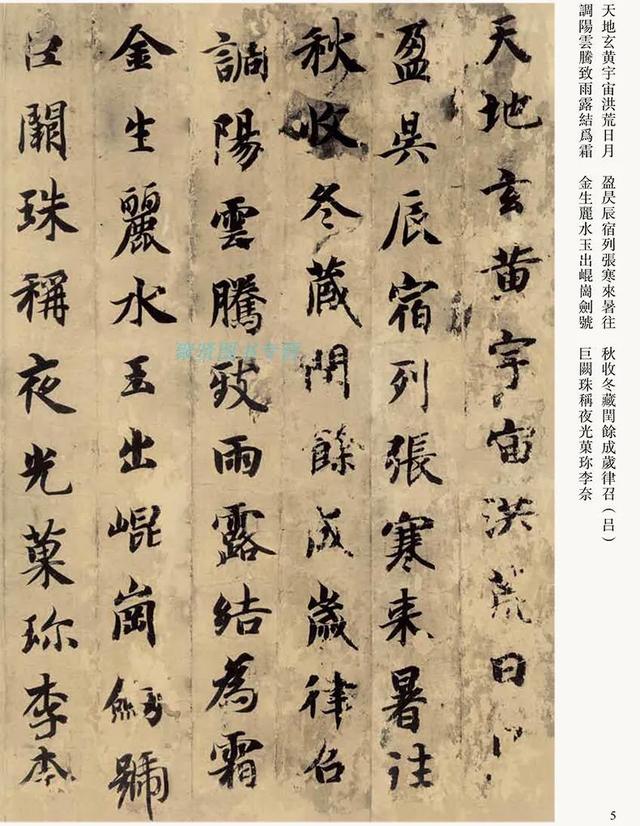 天地玄黄宇宙洪荒日月　盈昃辰宿列張寒來暑往　秋收冬藏閏餘成歲律召（吕）
調陽雲騰致雨露結爲霜　金生麗水玉出崐崗劍號　巨闕珠稱夜光菓珎李奈
天地玄黄宇宙洪荒日月
盈昃辰宿列張寒来暑往
秋收冬藏閏餘成歲律召
調陽雲騰致雨露結為霜
金生麗水玉出崐崗劔號
巨闕珠稱夜光菓珎李柰
5